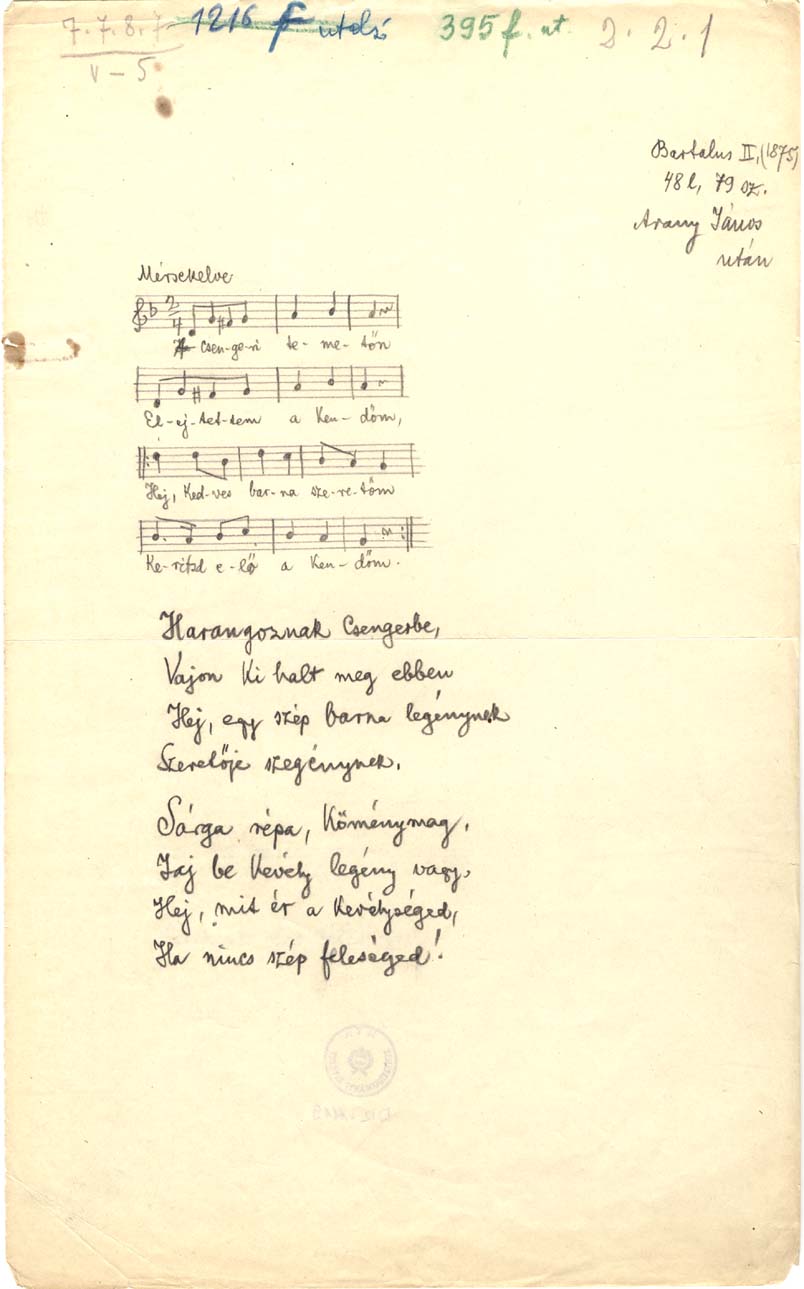 7.7.8.7 1216 f utolsó 395 f. ut. D.2.1
V-5
Bartalus II, (1875)
48 l, 79 sz.
Arany János
után
Mérsékelve
2/4
A csen-ge-ri te-me-tőn
El-ej-tet-tem a ken-dőm,
Hej, ked-ves bar-na sze-re-tőm
Ke-rítsd e-lő a ken-dőm.
Harangoznak Csengerbe,
Vajon ki halt meg ebben
Hej, egy szép barna legénynek
Szerelője szegénynek.
Sárga répa, köménymag,
Jaj be kevély legény vagy,
Hej, mit ér a kevélységed,
Ha nincs szép feleséged!